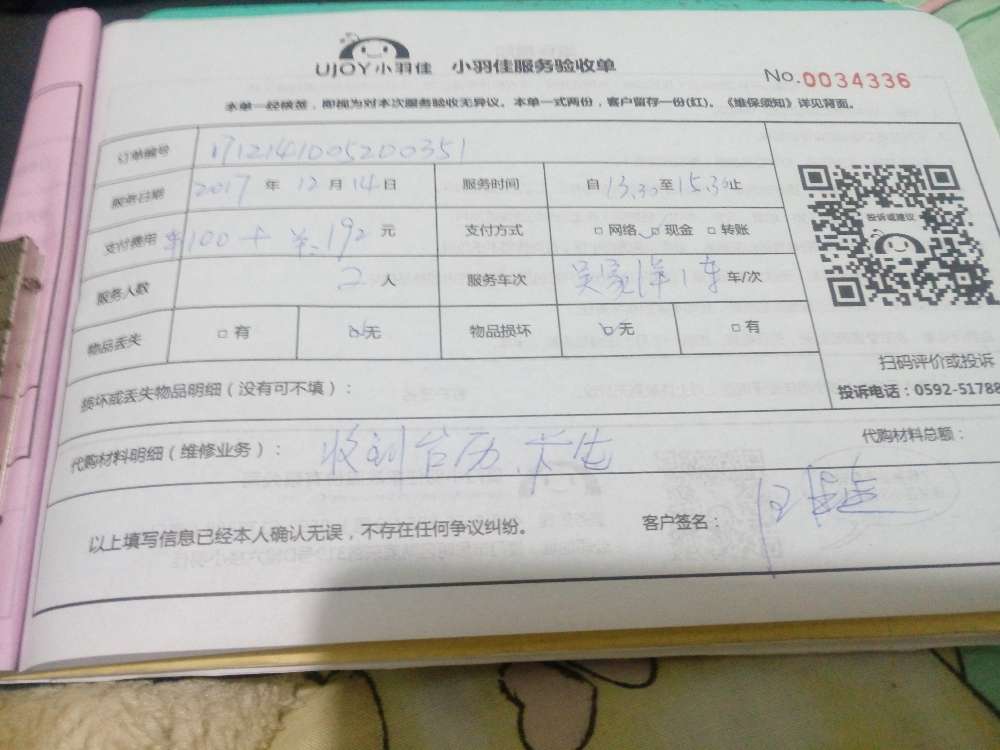 UJOY小羽佳 小羽佳服务验收单
No.0034336
本单一经签署，即视为对本次服务验收无异议。本单一式两份，客户留存一份(红)。《维保须知》详见背面。
订单编号 1712141005200351
服务日期 2017 年 12 月 14 日 服务时间 自 13.30 至 15.30 止
支付费用 ¥100 + ¥.192 元 支付方式 □ 网络 □ 现金 □ 转账
服务人数 2 人 服务车次 1车 车/次
物品丢失 □ 有 □ 无 物品损坏 □ 无 □ 有
投诉或建议
扫码评价或投诉
投诉电话：0592-51788
损坏或丢失物品明细（没有可不填）：
代购材料明细（维修业务）： 收到台历
代购材料总额：
以上填写信息已经本人确认无误，不存在任何争议纠纷。 客户签名：